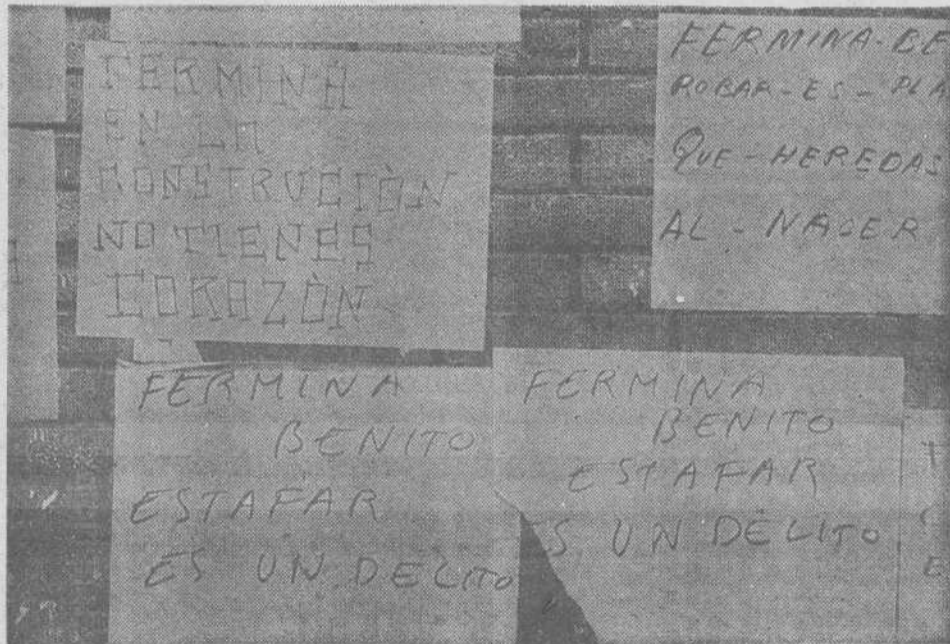 FERMINA
EN LA
CONSTRUCIÒN
NO TIENES
CORAZÒN
FERMINA-BE
ROBAR-ES-PLA
QUE-HEREDAS
AL-NACER
FERMINA
BENITO
ESTAFAR
ES UN DELITO
FERMINA
BENITO
ESTAFAR
ES UN DÉLITO